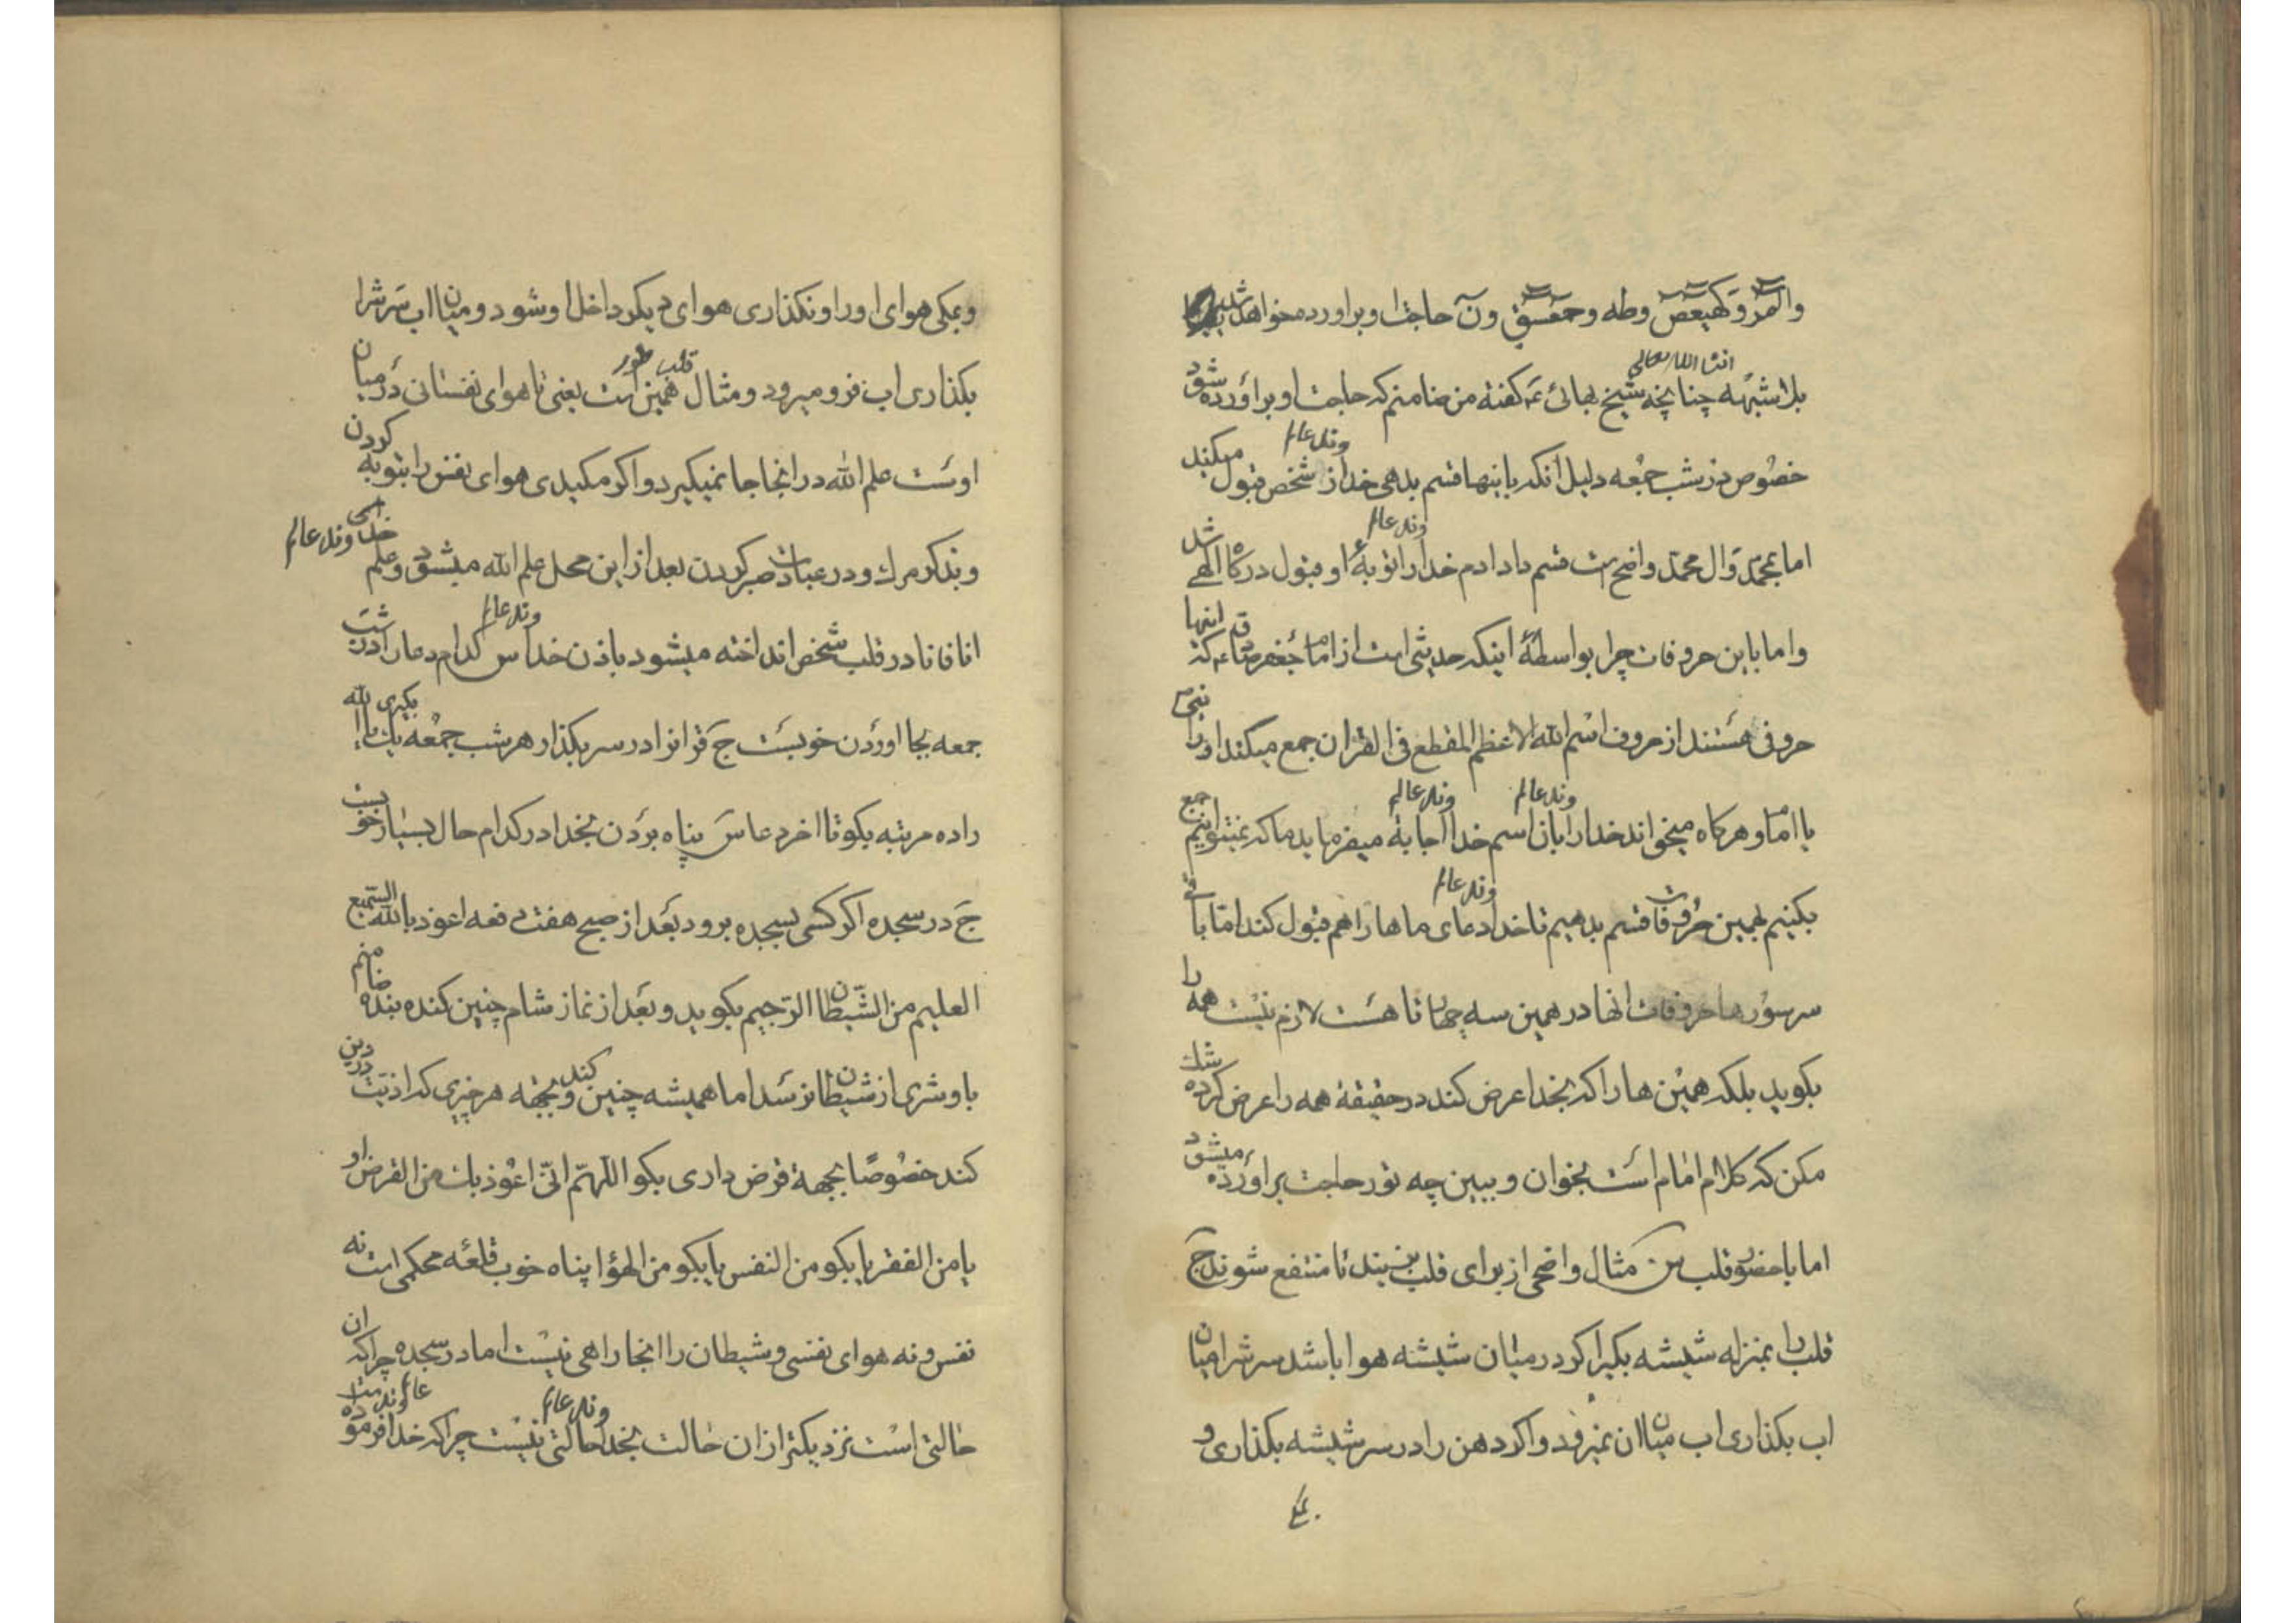 والمر و کهیعص وطه وحمعسق ون حاجت او براورده خواهد شد
بلاشبهه چنانچه انشا الله تعالی شیخ بهائی ره کفته من ضامنم که حاجت او براورده شود
خصوص در شب جمعه دلیل انکه باینها قسم بدهی خداوند عالم از شخص قبول میکند
اما بمحمد وال محمد واضح است قسم داد ادم خداوند عالم را توبهٔ او قبول درکاه الهی شد
واما باین حروفات چرا بواسطهٔ اینکه حدیثی است از امام جعفر صادق ع که انها
حروفی هستند از حروف اسم الله الاعظم المقطع فی القران جمع میکند او را نبی ص
یا امام و هرکاه میخواند خداوند عالم را بان اسم خداوند عالم اجابة میفرماید ما که نمیتوانیم جمع
بکنیم بهمین حروفات قسم بدهیم تا خداوند عالم دعای ماها را هم قبول کند اما باقی
سر سورها حروفات انها در همین سه چهار تا هست لازم نیست همه را
بکوید بلکه همین ها را که بخدا عرض کند در حقیقة همه را عرض کرده شک
مکن که کلام امام است بخوان و ببین چه تور حاجت براورده میشود
اما با حضور قلب س مثال واضحی از برای قلب بزنید تا منتفع شوند ج
قلب را بمنزله شیشه بکیر اکر در میان شیشه هوا باشد سرشرا میان
اب بکذاری اب میان ان نمیرود و اکر دهن را در سر شیشه بکذاری و
و بمکی هوای او را و نکذاری هوای دیکر داخل او شود و میان اب سرشرا
بکذاری اب فرو میرود و مثال قلب همین طور است یعنی تا هوای نفسانی در میان
اوست علم الله در انجا جا نمیکیرد و اکر مکیدی هوای نفس را بتوبه کردن
و بذکر مرک و در عبادت صبر کردن بعد از این محل علم الله میشود و علم خداوند عالم
انا فانا در قلب شخص انداخته میشود باذن خداوند عالم س کدام دعا را در شب
جمعه بجا اوردن خوبست ج قرانرا در سر بکذار هر شب جمعه بک یا الله بکیری
را ده مرتبه بکو تا اخر دعا س پناه بردن بخدا در کدام حال بسیار خوبست
ج در سجده اکر کسی بسجده برود بعد از صبح هفت دفعه اعوذ بالله السمیع
العلیم من الشیطان الرجیم بکوید و بعد از نماز شام چنین کند بنده ضامنم
باو شری از شیطان نرسد اما همیشه چنین کند و بجهه هر چیزی که اذیت در دین
کند خصوصا بجهة قرض داری بکو اللهم انی اعوذ بک من القرض او
یا من الفقر یا بکو من النفس یا بکو من الهوا پناه خوب قلعه محکمی است نه
نفس و نه هوای نفسی و شیطان را انجا راهی نیست اما در سجده چرا که ان
حالتی است نزدیکتر از ان حالت بخداوند عالم حالتی نیست چرا که خداوند عالم فرموده